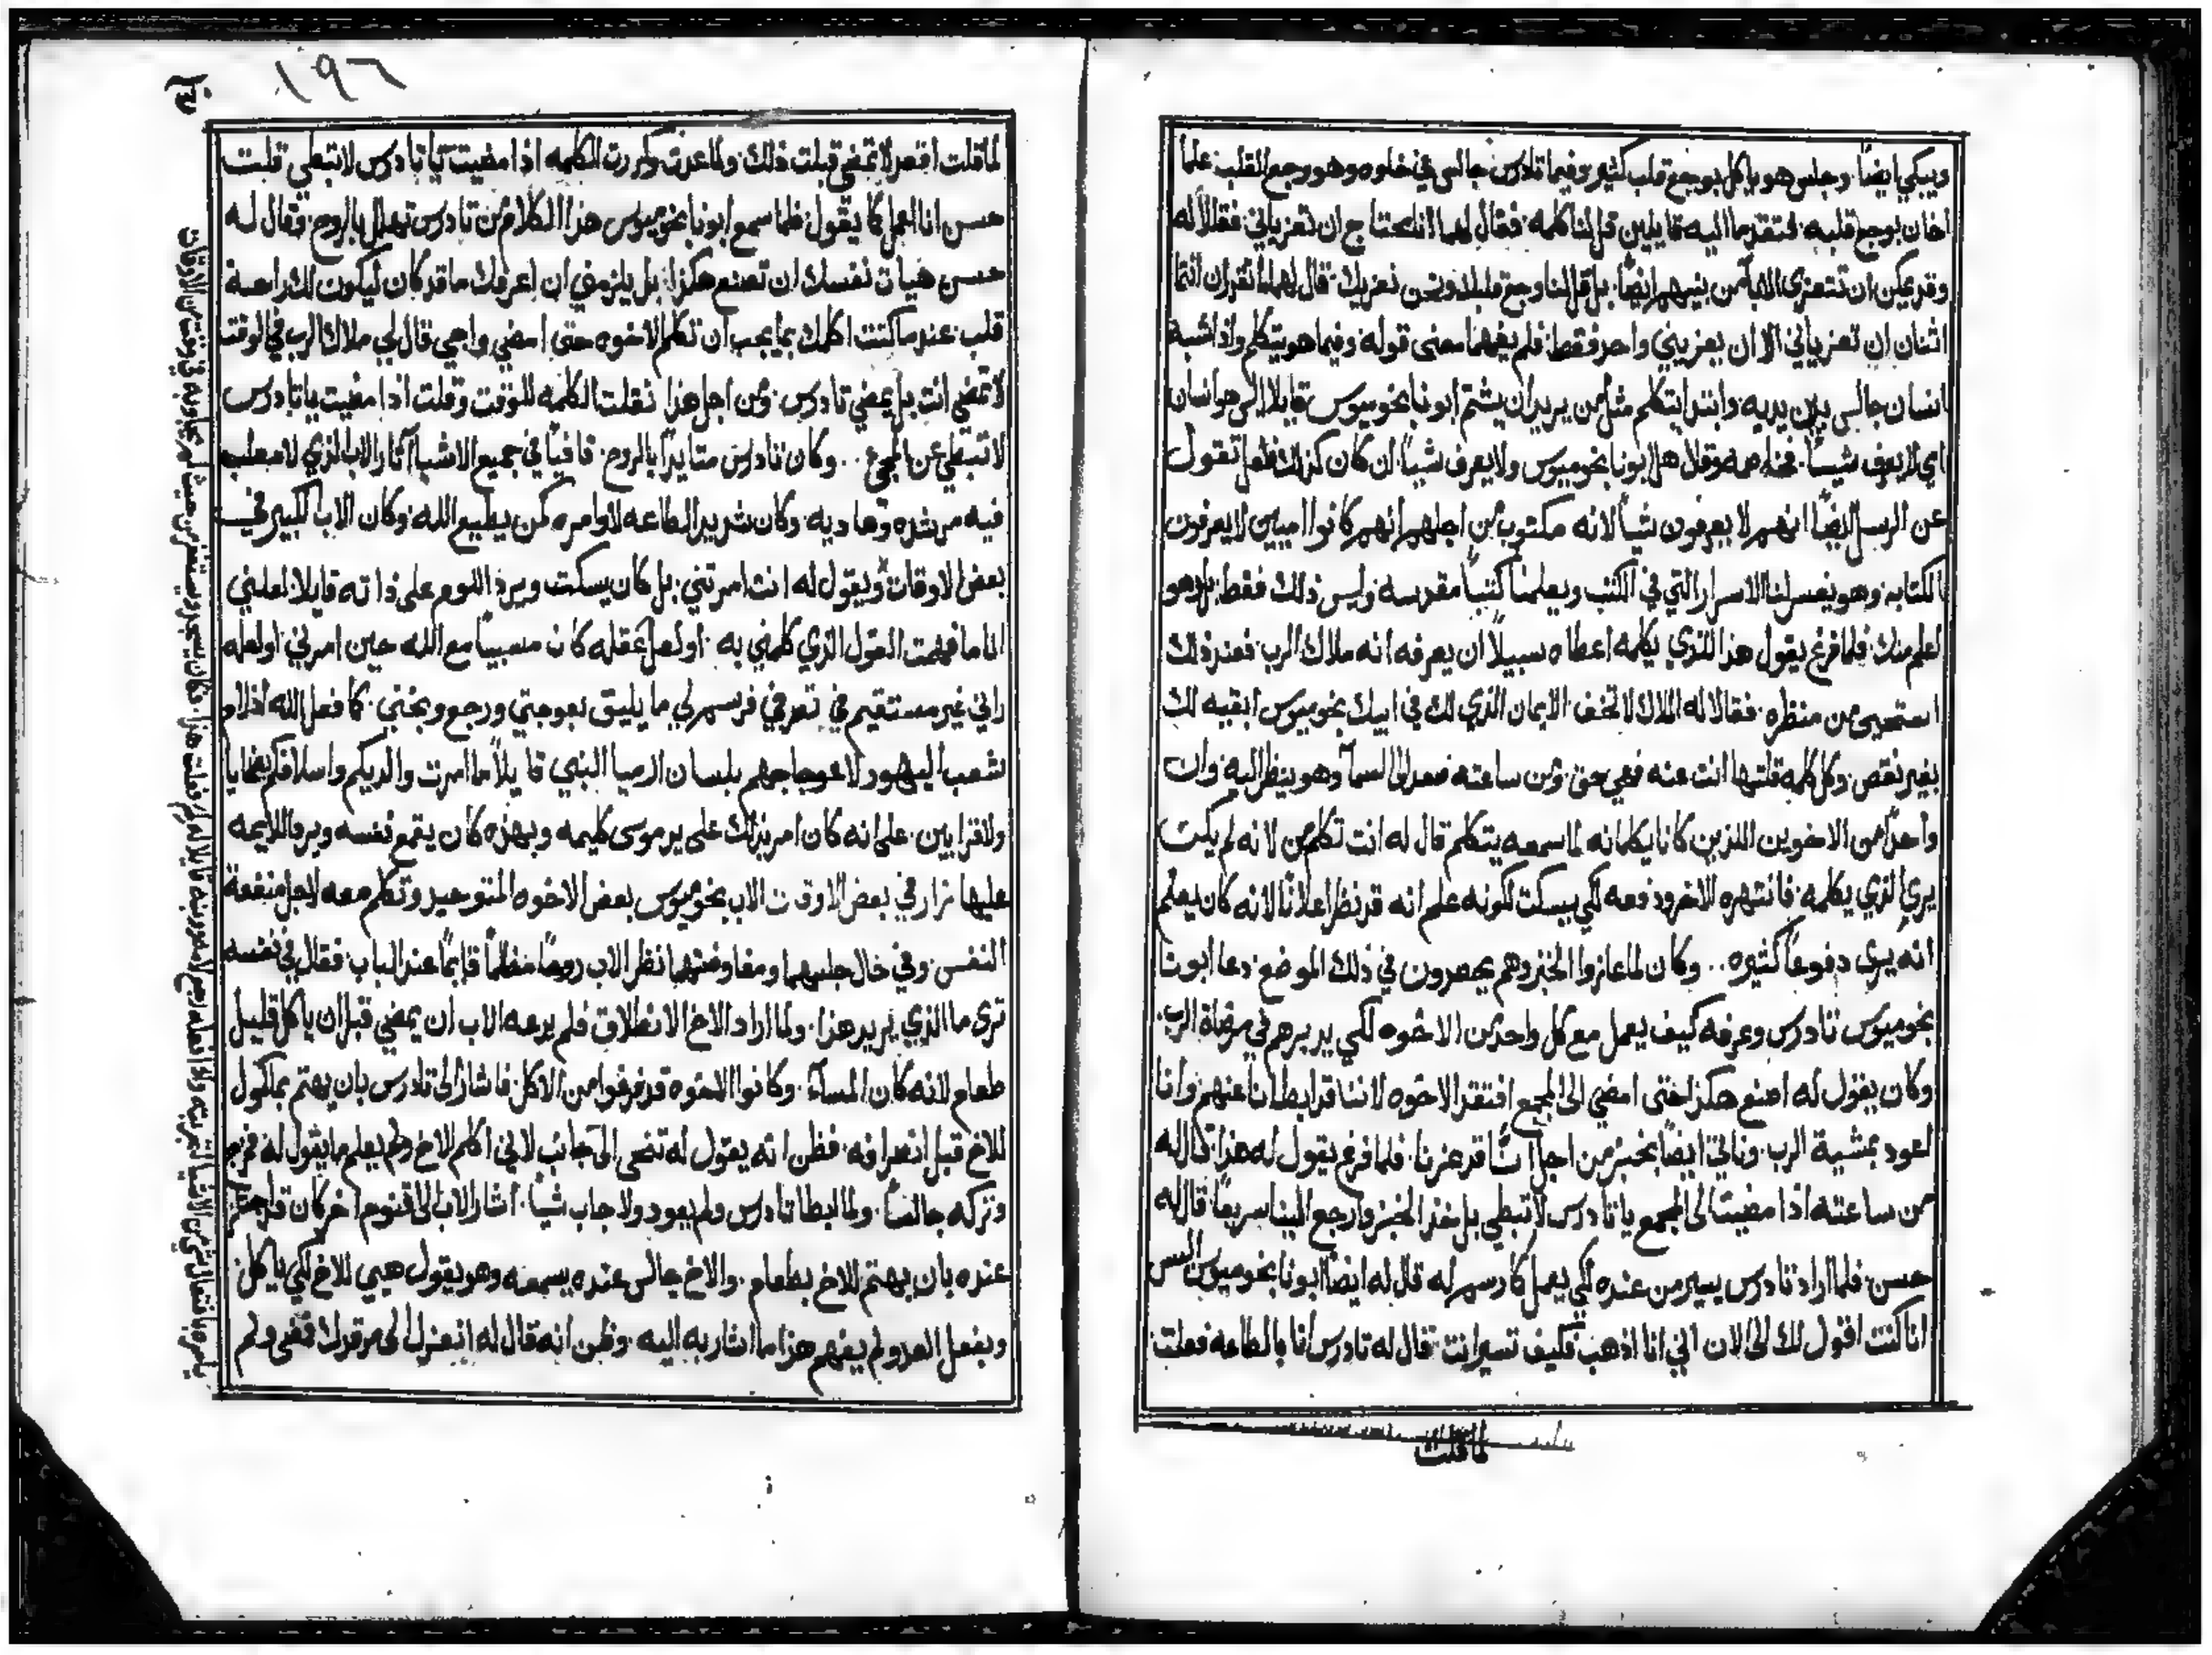 ويبكي ايضًا. وجلس هو ياكل بوجع قلب كثير وفيما تادرس جالس في خلوه وهو وجع القلب علما
اخان بوجع قلبه. فتقدما اليه قايلين قل لنا كلمه. فقال لهما انا محتاج ان تعزياني. فقالا له
وقد يمكن ان تتعزى الابآ من بنيهم ايضًا. بل قل لنا وجع قلبك ونحن نعزيك. قال لهما ما تقدران انتما
اثنان ان تعزياني الا ان يعزيني واحد فقط. فلم يفهما معنى قوله. وفيما هو يتكلم واذا شبه
انسان جالس بين يديه. وابتدا يتكلم مثل من يريد ان يشتم ابونا بخوميوس قايلا اليس هو انسان
اي لا يعرف شيًا. وقال هل ابونا بخوميوس ولا يعرف شيًا. ان كان كذلك فلعل تقول
عن الرسل ايضًا انهم لا يعرفون شيًا لانه مكتوب من اجلهم انهم كانوا اميين لا يعرفون
الكتابه. وهو يفسر لنا الاسرار التي في الكتب ويعلمنا كتبًا مقدسه وليس ذلك فقط. بل هو
اعلم منك. فلما فرغ يقول هذا للذي يكلمه اعطاه سبيلًا ان يعرفه انه ملاك الرب. فعند ذلك
استحيى من منظره. فقال له الملاك لا تخف. الايمان الذي لك في ابيك بخوميوس ابقيه لك
بغير نقص. وكل كلمه قلتها انت عنه فهي حق. ومن ساعته صعد الى السمآ وهو ينظر اليه. وان
واحدًا من الاخوين اللذين كانا يكلمانه لما سمعه يتكلم قال له انت تكلم من لانه لم يكن
يرى الذي يكلمه. فانتهره الاخر ودفعه لكي يسكت لكونه علم انه قد نظر اعلانًا لانه كان يعلم
انه يرى دفوعًا كثيره .. وكان لما عازوا الخبز وهم يحصدون في ذلك الموضع. دعا ابونا
بخوميوس تادرس وعرفه كيف يعمل مع كل واحد من الاخوه لكي يدبرهم في مرضاة الرب.
وكان يقول له اصنع هكذا حتى امضي الى المجمع افتقد الاخوه لاننا قد ابطانا عنهم وانا
اعود بمشية الرب. وناتي ايضًا بخبز من اجل اننا قد عزنا. فلما فرغ يقول له هذا. قال له
من ساعته اذا مضيت الى المجمع يا تادرس لا تبطي بل خذ الخبز وارجع الينا سريعًا. قال له
حسن. فلما اراد تادرس يسير من عنده لكي يعمل كما رسم له قال له ايضًا ابونا بخوميوس اليس
انا كنت اقول لك الى الان اني انا اذهب فكيف تسير انت. قال له تادرس انا بالطاعه فعلت.
لما قلت
١٩٦
لما قلت اقعد لا تمضي قبلت ذلك. ولما عدت وكررت الكلمه اذا مضيت يا تادرس لا تبطي قلت
حسن انا اعمل كما يقول. فلما سمع ابونا بخوميوس هذا الكلام من تادرس تهلل بالروح. فقال له
حسن هيات نفسك ان تصنع هكذا. بل يلزمني ان اعرفك ما قد كان ليكون لك راحة
قلب. عندما كنت اكلمك بما يجب ان تكلم الاخوه حتى امضي واجي قال لي ملاك الرب في الوقت
لا تمضي انت بل يمضي تادرس. ومن اجل هذا نقلت الكلمه للوقت وقلت اذا مضيت يا تادرس
لا تبطي عن المجي .. وكان تادرس متايدًا بالروح. قافيًا في جميع الاشيا آثار الاب الذي لا معطب
فيه مرشده وهاديه. وكان شديد الطاعه لاوامره كمن يطيع الله. وكان الاب الكبير في
بعض الاوقات ويقول له انت امرتني. بل كان يسكت ويرد اللوم على ذاته قايلا. لعلني
انا ما فهمت القول الذي كلمني به. او لعل عقله كان مسبيًا مع الله حين امرني. او لعله
راني غير مستقيم في تعرفي فرسم لي ما يليق بعوجتي ورجع وبخني. كما فعل الله اذ لام
شعب اليهود لاعوجاجهم بلسان ارميا النبي قايلًا ما امرت والديكم واسلافكم بضحايا
ولا قرابين. على انه كان امر بذلك على يد موسى كليمه وبهذه كان يقمع نفسه ويرد اللايمه
عليها. زار في بعض الاوقات الاب بخوميوس بعض الاخوه المتوحدين وتكلم معه لاجل منفعة
النفس. وفي خال جلسهما ومفاوضتهما نظر الاب روحًا مظلمًا قايمًا عند الباب. فقال في نفسه
ترى ما الذي يريد هذا. ولما اراد الاخ الانطلاق فلم يدعه الاب ان يمضي قبل ان ياكل قليل
طعام لانه كان المسآء. وكانوا الاخوه قد فرغوا من الاكل. فاشار الى تادرس بان يهتم بماكول
للاخ قبل انصرافه. فظن انه يقول له تنحى الى جانب لاني اكلم الاخ ولم يعلم ما يقول له فخرج
وتركه جالسًا. ولما ابطا تادرس ولم يعود ولا جاب شيًا. اشار الاب الى قنوم اخر كان قد اجتاز
عنده بان يهتم للاخ بطعام. والاخ جالس عنده يسمعه وهو يقول هيي للاخ لكي ياكل.
وبفعل العدو لم يفهم هذا ما اشار به اليه. وظن انه قال له انعزل الى مرقدك فمضى ولم